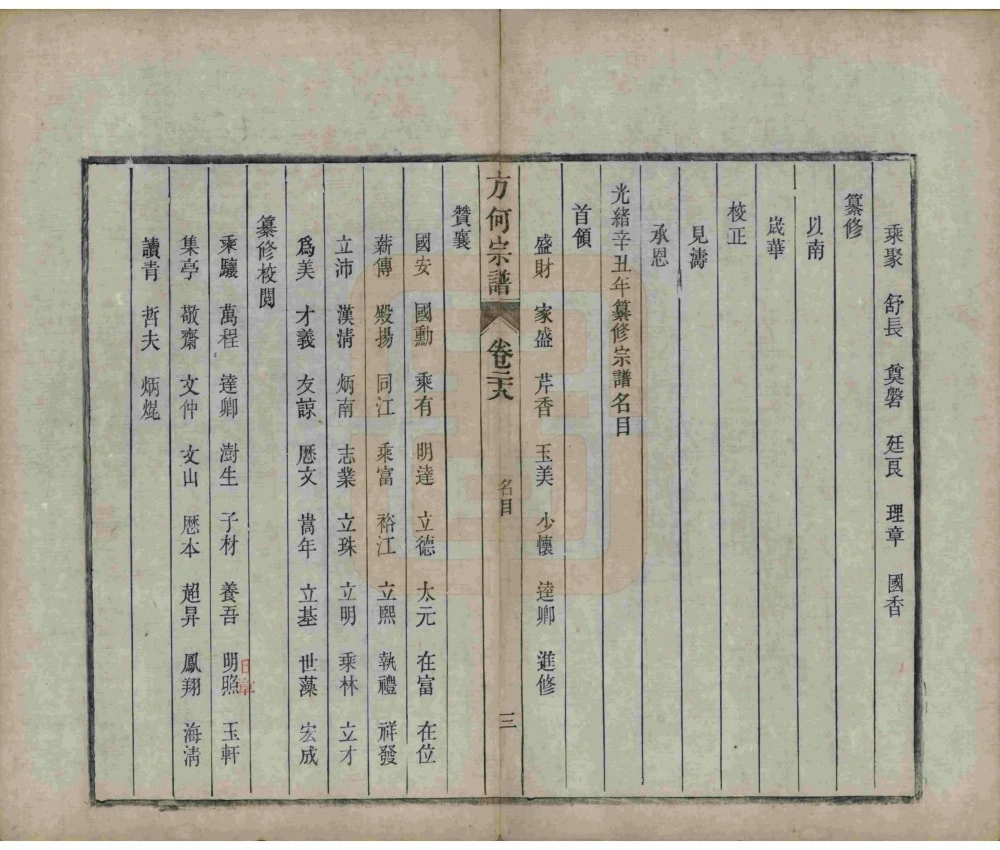 乘聚 舒長 奠磐 廷艮 理章 國香
纂修
以南
嵗華
校正
見濤
承恩
光緒辛丑年纂修宗譜名目
首領
盛財 家盛 芹香 玉美 少懷 達卿 進修
方何宗譜 卷二六 名目 三
贊襄
國安 國勳 乘有 明達 立德 太元 在富 在位
薪傳 毀揚 同江 乘富 裕江 立熙 執禮 祥發
立沛 漢淸 炳南 志業 立珠 立明 乘林 立才
爲美 才義 友諒 厯文 嵩年 立基 世藻 宏成
纂修校閱
乘驤 萬程 達卿 澍生 子材 養吾 明照 玉軒
日章
集亭 敬齋 文仲 文山 厯本 超昇 鳳翔 海淸
讀青 哲夫 炳焜